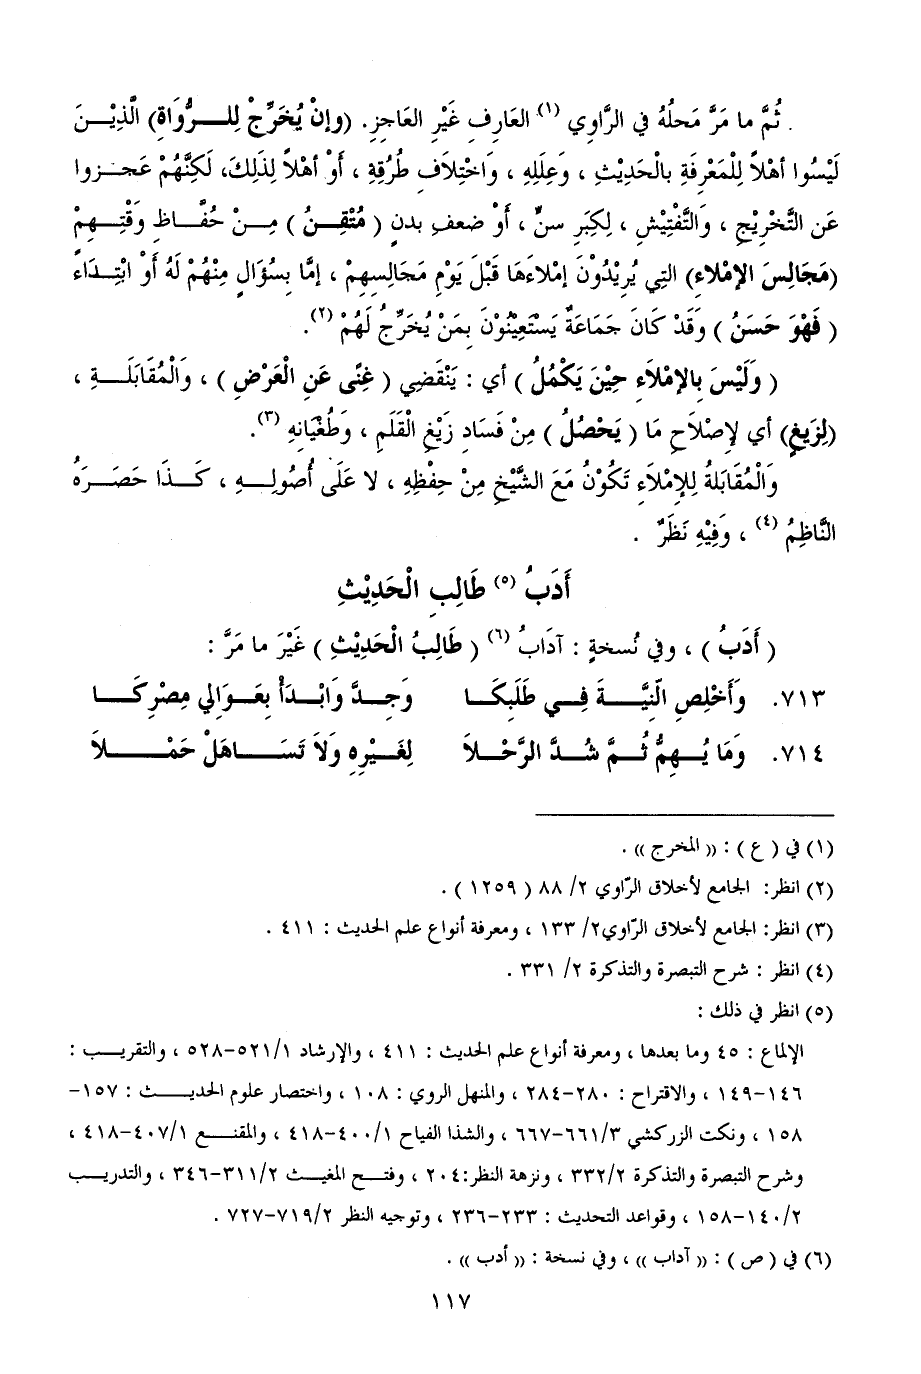 ثُمَّ ما مَرَّ مَحلُهُ في الرَّاوي (١) العَارِفِ غَيْرِ العَاجزِ. (وإنْ يُخَرِّجْ لِلــرُّوَاةِ) الَّذِيْــنَ
لَيْسُوا أهْلاً لِلْمَعْرِفَةِ بالْحَدِيْثِ ، وَعِلَلِهِ ، وَاخْتِلاَفِ طُرُقِهِ ، أَوْ أهْلاً لِذَلِكَ، لَكِنَّهُمْ عَجَــزوا
عَنِ التَّخْرِيْجِ ، وَالتَّفْتِيْشِ ، لِكِبَرِ سنٍّ ، أَوْ ضعفِ بدنٍ ( مُتْقِــنُ ) مِــنْ حُفَّــاظِ وَقْتِــهِمْ
(مَجَالِسَ الإمْلاءِ) التي يُرِيْدُوْنَ إمْلاءَهَا قَبْلَ يَوْمِ مَجَالِسِهِمْ ، إمَّا بِسُؤَالٍ مِنْهُمْ لَهُ أَوْ ابْتِدَاءً
( فَهْوَ حَسَنُ ) وَقَدْ كَانَ جَمَاعَةٌ يَسْتَعِيْنُوْنَ بِمَنْ يُخَرِّجُ لَهُمْ (٢).
( وَلَيْسَ بالإمْلاَءِ حِيْنَ يَكْمُلُ ) أي : يَنْقَضِي ( غِنًى عَنِ الْعَرْضِ ) ، وَالْمُقَابَلَــةِ ،
(لِزَيغٍ) أي لإصْلاَحِ مَا ( يَحْصُلُ ) مِنْ فَسَادِ زَيْغِ الْقَلَمِ ، وَطُغْيَانِهِ (٣).
وَالْمُقَابَلةُ لِلإمْلاَءِ تَكُوْنُ مَعَ الشَّيْخِ مِنْ حِفْظِهِ ، لا عَلَى أُصُولِــهِ ، كَــذَا حَصَــرَهُ
النَّاظِمُ (٤) ، وَفِيْهِ نَظَرٌ .
أَدَبُ (٥) طَالِبِ الْحَدِيْثِ
( أَدَبُ ) ، وفي نُسخةٍ : آدَابُ (٦) ( طَالِبُ الْحَدِيْثِ ) غَيْرَ ما مَرَّ :
٧١٣. وَأَخْلِصِ النِّيَّــةَ فِــي طَلَبِكَــا وَجِــدَّ وَابْــدَأْ بِعَــوَالِي مِصْرِكَــا
٧١٤. وَمَا يُــهِمُّ ثُــمَّ شُــدَّ الرَّحْــلاَ لِغَــيْرِهِ وَلاَ تَسَــاهَلْ حَمْــلاَ
(١) في ( ع ) : (( المخرج )) .
(٢) انظر: الجامع لأخلاق الرّاوي ٢/ ٨٨ ( ١٢٥٩ ) .
(٣) انظر: الجامع لأخلاق الرّاوي٢/ ١٣٣ ، ومعرفة أنواع علم الحديث : ٤١١ .
(٤) انظر : شرح التبصرة والتذكرة ٢/ ٣٣١ .
(٥) انظر في ذلك :
الإلماع : ٤٥ وما بعدها ، ومعرفة أنواع علم الحديث : ٤١١ ، والإرشاد ١/٥٢١-٥٢٨ ، والتقريــب :
١٤٦-١٤٩ ، والاقتراح : ٢٨٠-٢٨٤ ، والمنهل الروي : ١٠٨ ، واختصار علوم الحديــث : ١٥٧-
١٥٨ ، ونكت الزركشي ٣/٦٦١-٦٦٧ ، والشذا الفياح ١/٤٠٠-٤١٨ ، والمقنــع ١/٤٠٧-٤١٨ ،
وشرح التبصرة والتذكرة ٢/٣٣٢ ، ونزهة النظر:٢٠٤ ، وفتــح المغيــث ٢/٣١١-٣٤٦ ، والتدريــب
٢/١٤٠-١٥٨ ، وقواعد التحديث : ٢٣٣-٢٣٦ ، وتوجيه النظر ٢/٧١٩-٧٢٧ .
(٦) في ( ص ) : (( آداب )) ، وفي نسخة : (( أدب )) .
١١٧